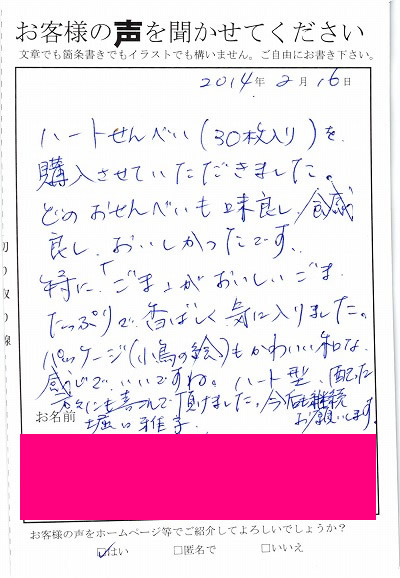 お客様の声を聞かせてください
文章でも箇条書きでもイラストでも構いません。ご自由にお書き下さい。
2014年2月16日
ハートせんべい(30枚入り)を
購入させていただきました。
どのおせんべいも味良し、食感
良し、おいしかったです。
特に「ごま」がおいしいごま
たっぷりで香ばしく気に入りました。
パッケージ(小鳥の絵)もかわいい和な
感じでいいですね。ハート型、配った
方々にも喜んで頂けました。今後も継続
お願いします。
お名前 堀口雅子
切り取り線
お客様の声をホームページ等でご紹介してよろしいでしょうか?
☑はい □匿名で □いいえ